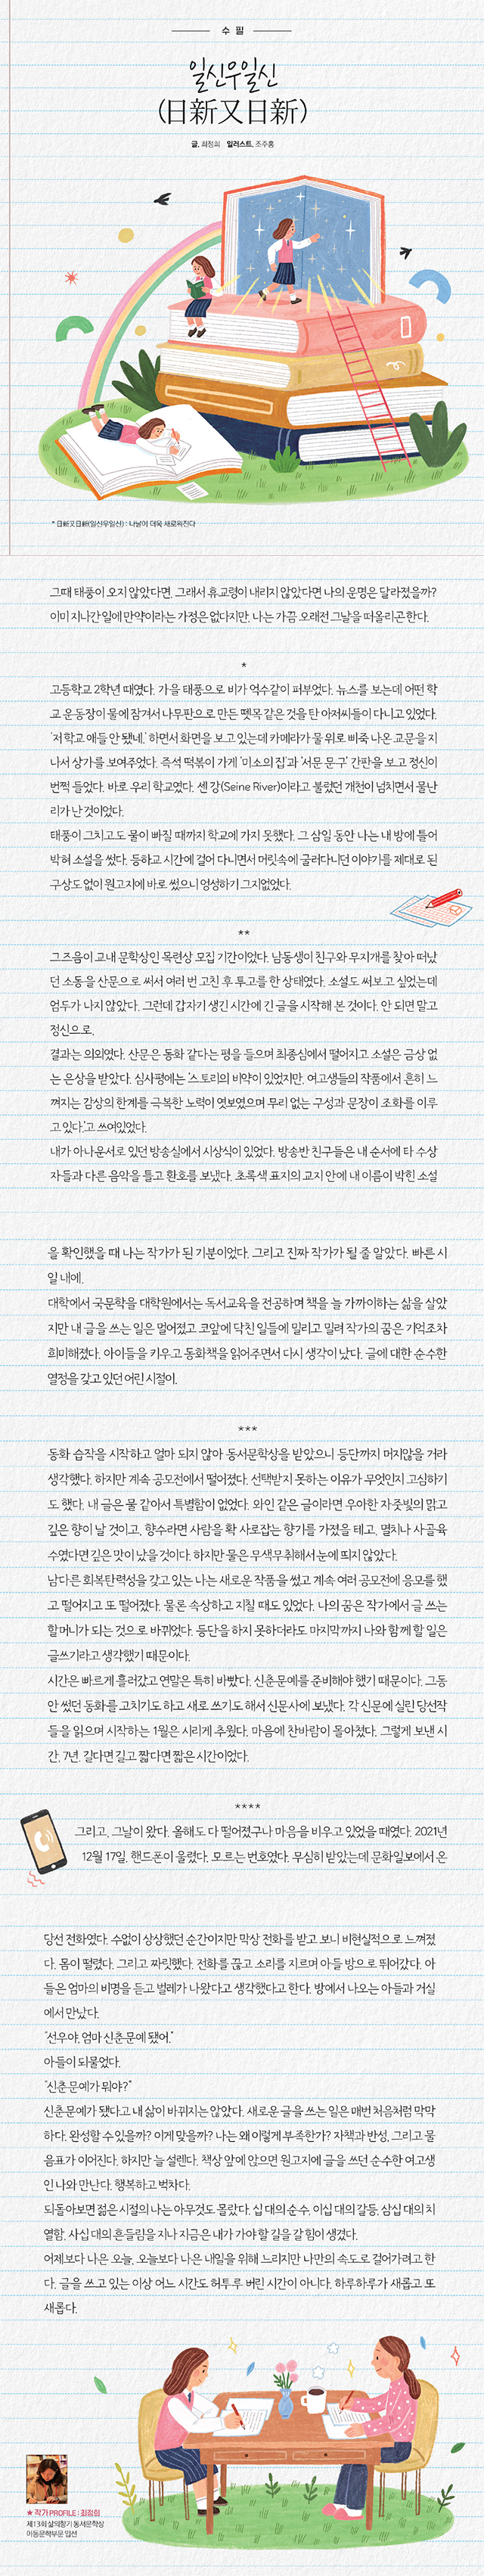 수 필
일신우일신
(日新又日新)
글. 최정희 일러스트. 조주홍
* 日新又日新(일신우일신) : 나날이 더욱 새로워진다
그때 태풍이 오지 않았다면, 그래서 휴교령이 내리지 않았다면 나의 운명은 달라졌을까?
이미 지나간 일에 만약이라는 가정은 없다지만, 나는 가끔 오래전 그날을 떠올리곤 한다.
*
고등학교 2학년 때였다. 가을 태풍으로 비가 억수같이 퍼부었다. 뉴스를 보는데 어떤 학
교 운동장이 물에 잠겨서 나무판으로 만든 뗏목 같은 것을 탄 아저씨들이 다니고 있었다.
'저 학교 애들 안 됐네.' 하면서 화면을 보고 있는데 카메라가 물 위로 삐죽 나온 교문을 지
나서 상가를 보여주었다. 즉석 떡볶이 가게 '미소의 집'과 '서문 문구' 간판을 보고 정신이
번쩍 들었다. 바로 우리 학교였다. 센 강(Seine River)이라고 불렀던 개천이 넘치면서 물난
리가 난 것이었다.
태풍이 그치고도 물이 빠질 때까지 학교에 가지 못했다. 그 삼일 동안 나는 내 방에 틀어
박혀 소설을 썼다. 등하교 시간에 걸어 다니면서 머릿속에 굴러다니던 이야기를 제대로 된
구상도 없이 원고지에 바로 썼으니 엉성하기 그지없었다.
**
그 즈음이 교내 문학상인 목련상 모집 기간이었다. 남동생이 친구와 무지개를 찾아 떠났
던 소동을 산문으로 써서 여러 번 고친 후 투고를 한 상태였다. 소설도 써보고 싶었는데
엄두가 나지 않았다. 그런데 갑자기 생긴 시간에 긴 글을 시작해 본 것이다. 안 되면 말고
정신으로.
결과는 의외였다. 산문은 동화 같다는 평을 들으며 최종심에서 떨어지고 소설은 금상 없
는 은상을 받았다. 심사평에는 '스토리의 비약이 있었지만, 여고생들의 작품에서 흔히 느
껴지는 감상의 한계를 극복한 노력이 엿보였으며 무리 없는 구성과 문장이 조화를 이루
고 있다.'고 쓰여있었다.
내가 아나운서로 있던 방송실에서 시상식이 있었다. 방송반 친구들은 내 순서에 타 수상
자들과 다른 음악을 틀고 환호를 보냈다. 초록색 표지의 교지 안에 내 이름이 박힌 소설
을 확인했을 때 나는 작가가 된 기분이었다. 그리고 진짜 작가가 될 줄 알았다. 빠른 시
일 내에.
대학에서 국문학을 대학원에서는 독서교육을 전공하며 책을 늘 가까이하는 삶을 살았
지만 내 글을 쓰는 일은 멀어졌고 코앞에 닥친 일들에 밀리고 밀려 작가의 꿈은 기억조차
희미해졌다. 아이들을 키우고 동화책을 읽어주면서 다시 생각이 났다. 글에 대한 순수한
열정을 갖고 있던 어린 시절이.
***
동화 습작을 시작하고 얼마 되지 않아 동서문학상을 받았으니 등단까지 머지않을 거라
생각했다. 하지만 계속 공모전에서 떨어졌다. 선택받지 못하는 이유가 무엇인지 고심하기
도 했다. 내 글은 물 같아서 특별함이 없었다. 와인 같은 글이라면 우아한 자줏빛의 맑고
깊은 향이 날 것이고, 향수라면 사람을 확 사로잡는 향기를 가졌을 테고, 멸치나 사골육
수였다면 깊은 맛이 났을 것이다. 하지만 물은 무색무취해서 눈에 띄지 않았다.
남다른 회복탄력성을 갖고 있는 나는 새로운 작품을 썼고 계속 여러 공모전에 응모를 했
고 떨어지고 또 떨어졌다. 물론, 속상하고 지칠 때도 있었다. 나의 꿈은 작가에서 글 쓰는
할머니가 되는 것으로 바뀌었다. 등단을 하지 못하더라도 마지막까지 나와 함께 할 일은
글쓰기라고 생각했기 때문이다.
시간은 빠르게 흘러갔고 연말은 특히 바빴다. 신춘문예를 준비해야 했기 때문이다. 그동
안 썼던 동화를 고치기도 하고 새로 쓰기도 해서 신문사에 보냈다. 각 신문에 실린 당선작
들을 읽으며 시작하는 1월은 시리게 추웠다. 마음에 찬바람이 몰아쳤다. 그렇게 보낸 시
간, 7년. 길다면 길고 짧다면 짧은 시간이었다.
****
그리고, 그날이 왔다. 올해도 다 떨어졌구나 마음을 비우고 있었을 때였다. 2021년
12월 17일. 핸드폰이 울렸다. 모르는 번호였다. 무심히 받았는데 문화일보에서 온
당선 전화였다. 수없이 상상했던 순간이지만 막상 전화를 받고 보니 비현실적으로 느껴졌
다. 몸이 떨렸다. 그리고 짜릿했다. 전화를 끊고 소리를 지르며 아들 방으로 뛰어갔다. 아
들은 엄마의 비명을 듣고 벌레가 나왔다고 생각했다고 한다. 방에서 나오는 아들과 거실
에서 만났다.
"선우야, 엄마 신춘문예 됐어."
아들이 되물었다.
"신춘문예가 뭐야?"
신춘문예가 됐다고 내 삶이 바뀌지는 않았다. 새로운 글을 쓰는 일은 매번 처음처럼 막막
하다. 완성할 수 있을까? 이게 맞을까? 나는 왜 이렇게 부족한가? 자책과 반성, 그리고 물
음표가 이어진다. 하지만 늘 설렌다. 책상 앞에 앉으면 원고지에 글을 쓰던 순수한 여고생
인 나와 만난다. 행복하고 벅차다.
되돌아보면 젊은 시절의 나는 아무것도 몰랐다. 십 대의 순수, 이십 대의 갈등, 삼십 대의 치
열함, 사십 대의 흔들림을 지나 지금은 내가 가야 할 길을 갈 힘이 생겼다.
어제보다 나은 오늘, 오늘보다 나은 내일을 위해 느리지만 나만의 속도로 걸어가려고 한
다. 글을 쓰고 있는 이상 어느 시간도 허투루 버린 시간이 아니다. 하루하루가 새롭고 또
새롭다.
★ 작가 PROFILE : 최정희
제13회 삶의향기 동서문학상
아동문학부문 입선